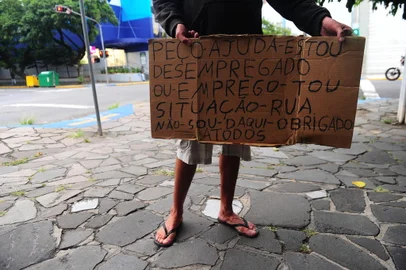 PEÇO AJUDA-ESTOU
DESEMPREGADO
OU-EMPREGO-TOU
SITUAÇÃO-RUA
NÃO-SOU-DAQUI-OBRIGADO
A TODOS